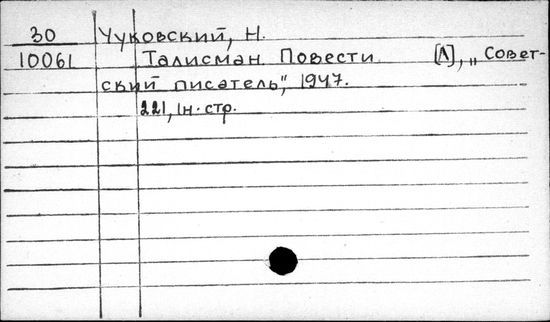 30 Чуковский, Н.
10061 Талисман. Повести. [Л], „Совет-
ский писатель", 1947.
221, 1н. стр.